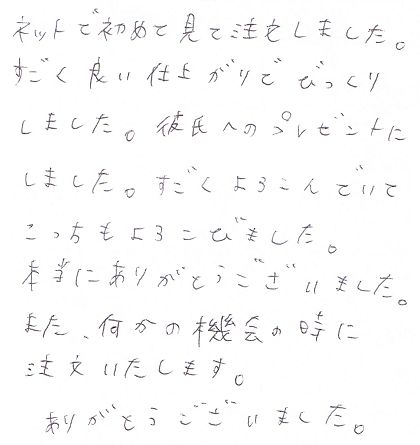 ネットで初めて見て注文しました。
すごく良い仕上がりでびっくり
しました。彼氏へのプレゼントに
しました。すごくよろこんでいて
こっちもよろこびました。
本当にありがとうございました。
また、何かの機会の時に
注文いたします。
ありがとうございました。